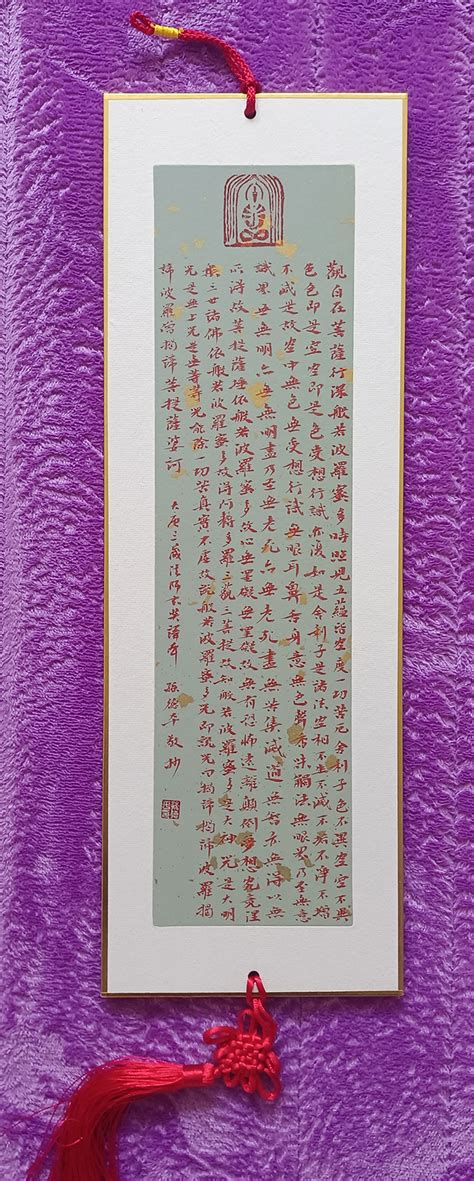 觀自在菩薩行深般若波羅蜜多時照見五蘊皆空度一切苦厄舍利子色不異空空不異
色色即是空空即是色受想行識亦復如是舍利子是諸法空相不生不滅不垢不淨不增
不減是故空中無色無受想行識無眼耳鼻舌身意無色聲香味觸法無眼界乃至無意
識界無無明亦無無明盡乃至無老死亦無老死盡無苦集滅道無智亦無得以無
所得故菩提薩埵依般若波羅蜜多故心無罣礙無罣礙故無有恐怖遠離顛倒夢想究竟涅
槃三世諸佛依般若波羅蜜多故得阿耨多羅三藐三菩提故知般若波羅蜜多是大神咒是大明
咒是無上咒是無等等咒能除一切苦真實不虛故說般若波羅蜜多咒即說咒曰揭諦揭諦波羅揭
諦波羅僧揭諦菩提薩婆訶 大唐三藏法師玄奘譯 孫德 敬抄